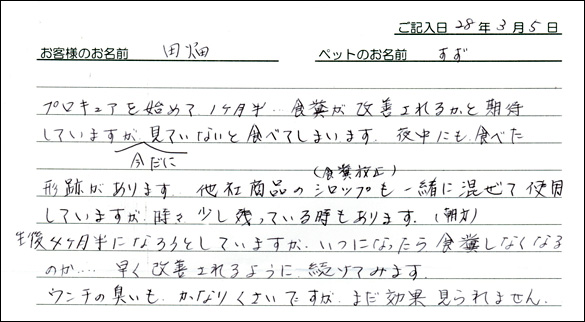 ご記入日 28年 3月 5日
お客様のお名前 田畑 ペットのお名前 すず
プロキュアを始めて、1ヶ月半…食糞が改善されるかと期待
していますが、見ていないと食べてしまいます。夜中にも食べた
今だに
(食糞校正)
形跡があります。他社商品のシロップも一緒に混ぜて使用
していますが、時々少し残っている時もあります。(朝方)
生後4ヶ月半になろうとしていますが、いつになったら食糞しなくなる
のか…。早く改善されるように続けてみます。
ウンチの臭いも、かなりくさいですが、まだ効果見られません。